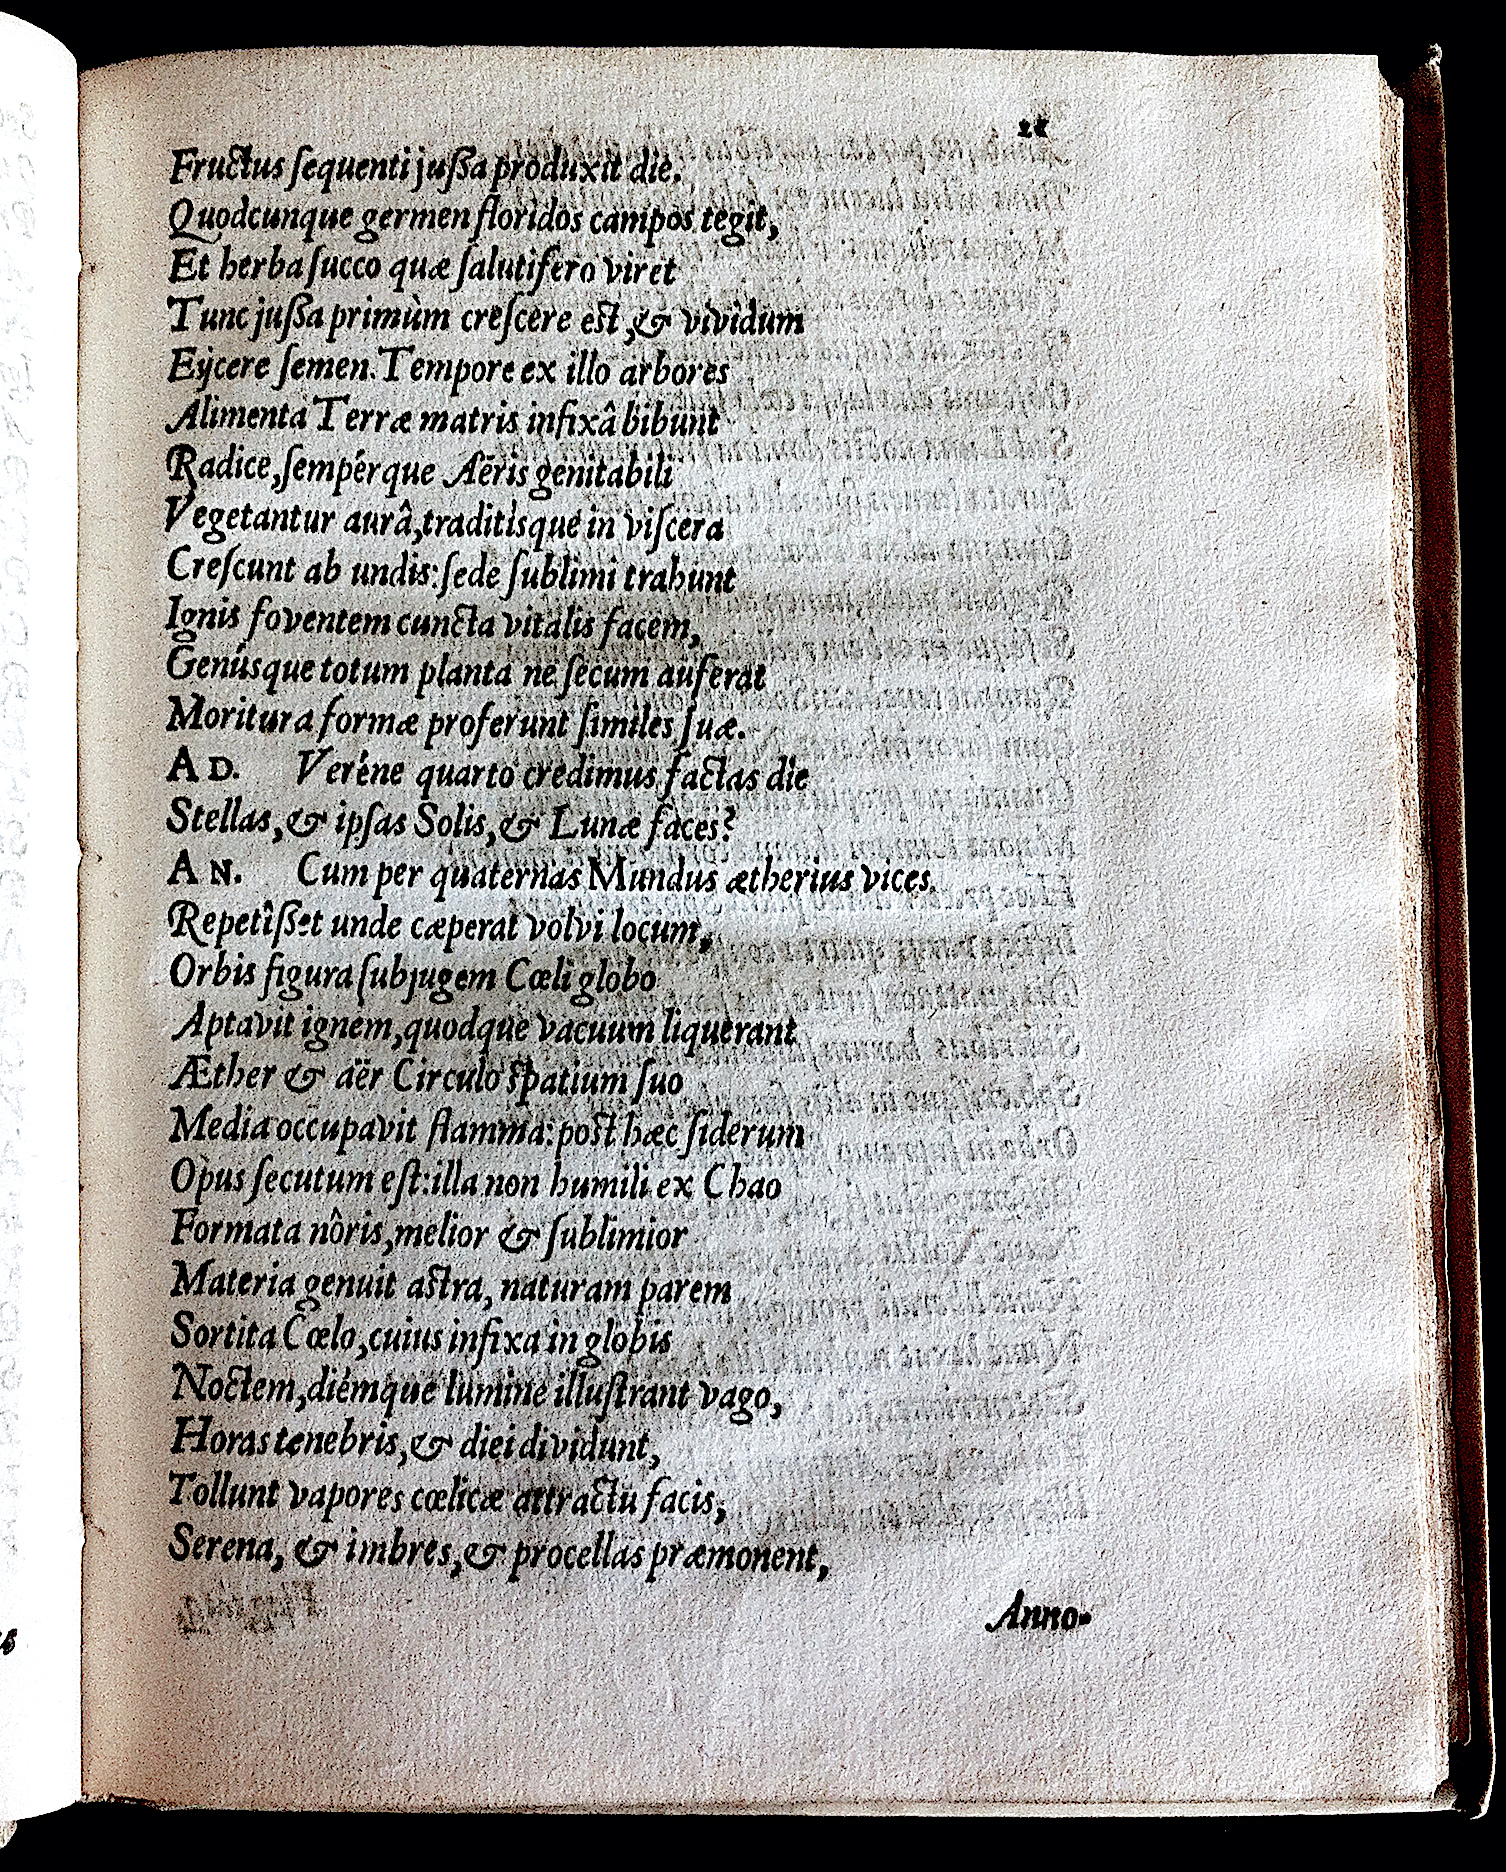 21
Fructus ſequenti juſſa produxit die.
Quodcunque germen floridos campos tegit,
Et herba ſucco quæ ſalutifero viret
Tunc juſſa primùm creſcere eſt, & vividum
Eijcere ſemen. Tempore ex illo arbores
Alimenta Terræ matris infixâ bibunt
Radice, ſempérque Aëris genitabili
Vegetantur aurâ, traditisque in viſcera
Creſcunt ab undis: ſede ſublimi trahunt
Ignis foventem cuncta vitalis facem,
Genúsque totum planta ne ſecum auferat
Moritura formæ proferunt ſimiles ſuæ.
AD. Veréne quarto credimus factas die
Stellas, & ipſas Solis, & Lunæ faces?
AN. Cum per quaternas Mundus ætherius vices
Repetîſſet unde cæperat volvi locum,
Orbis figura ſubjugem Cœli globo
Aptavit ignem, quodque vacuum liquerant
Æther & aër Circulo ſpatium ſuo
Media occupavit flamma: poſt hæc ſiderum
Opus ſecutum eſt: illa non humili ex Chao
Formata nôris, melior & ſublimior
Materia genuit aſtra, naturam parem
Sortita Cœlo, cuius infixa in globis
Noctem, diémque lumine illuſtrant vago,
Horas tenebris, & diei dividunt,
Tollunt vapores cœlicæ attractu facis,
Serena, & imbres, & procellas præmonent,
Anno-